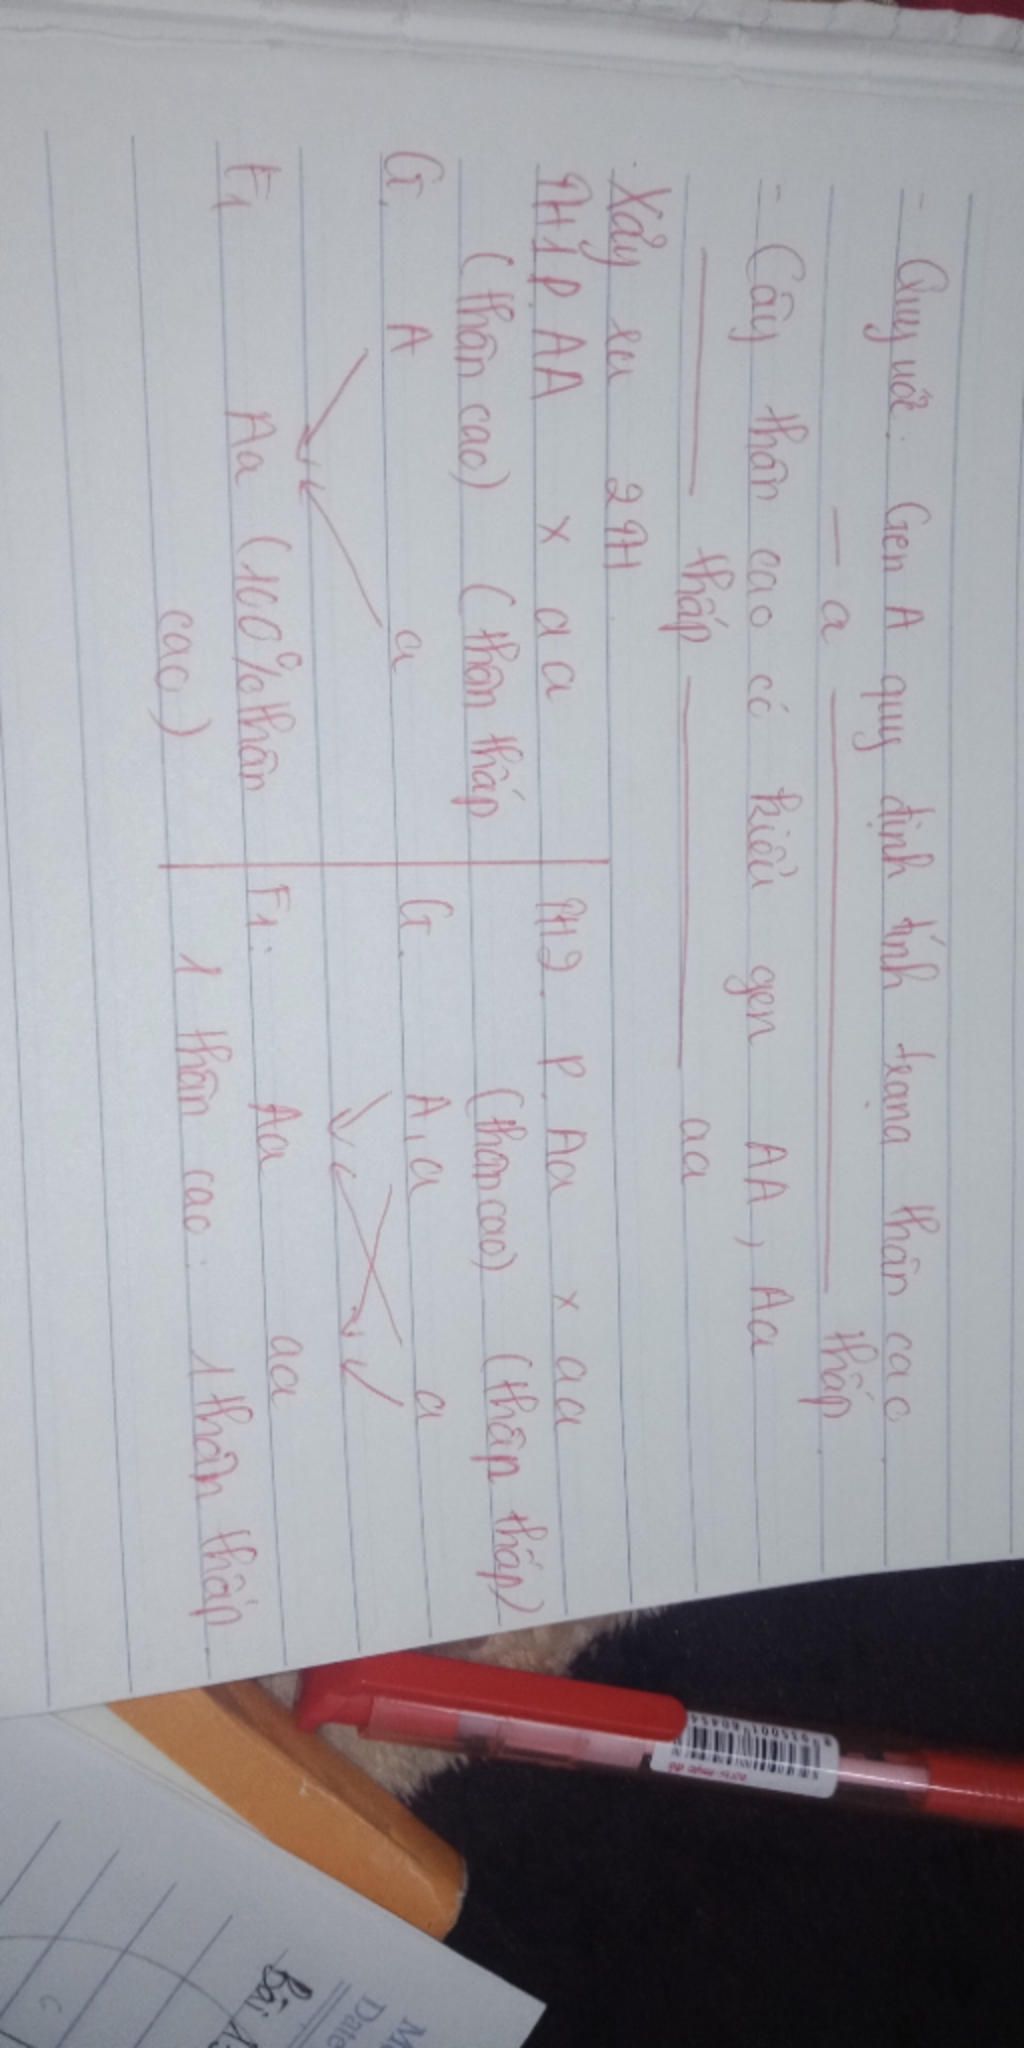 - Quy ước: Gen A quy định tính trạng thân cao.
— a ——— thấp.
- Cây thân cao có kiểu gen AA, Aa
——— thấp ——— aa
Xảy ra 2TH
TH1 P. AA x aa
(thân cao) (thân thấp
G. A a
F1 Aa (100% thân
cao)
TH2. P. Aa x aa
(thân cao) (thân thấp)
G. A, a a
F1: Aa aa
1 thân cao : 1 thân thấp.
Bài 13
Date